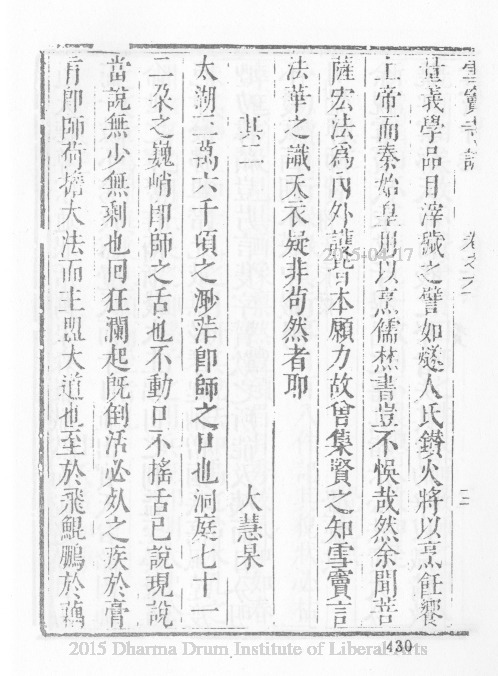 雪竇寺誌 卷之六 三
量義學品目滓穢之譬如燧人氏鑽火將以烹飪饗
上帝而秦始皇用以烹儒焚書豈不悞哉然余聞菩
薩宏法爲內外護皆本願力故曾集賢之知雪竇言
法華之識天衣疑非苟然者耶
其二 大慧杲
太湖三萬六千頃之渺茫卽師之口也洞庭七十一
二朶之巍峭卽師之舌也不動口不搖舌已說現說
當說無少無剩也回狂瀾起旣倒活必死之疾於膏
肓卽師荷擔大法而主盟大道也至於飛鯤鵬於藕
430
2015-04-17
2015 Dharma Drum Institute of Liberal Arts